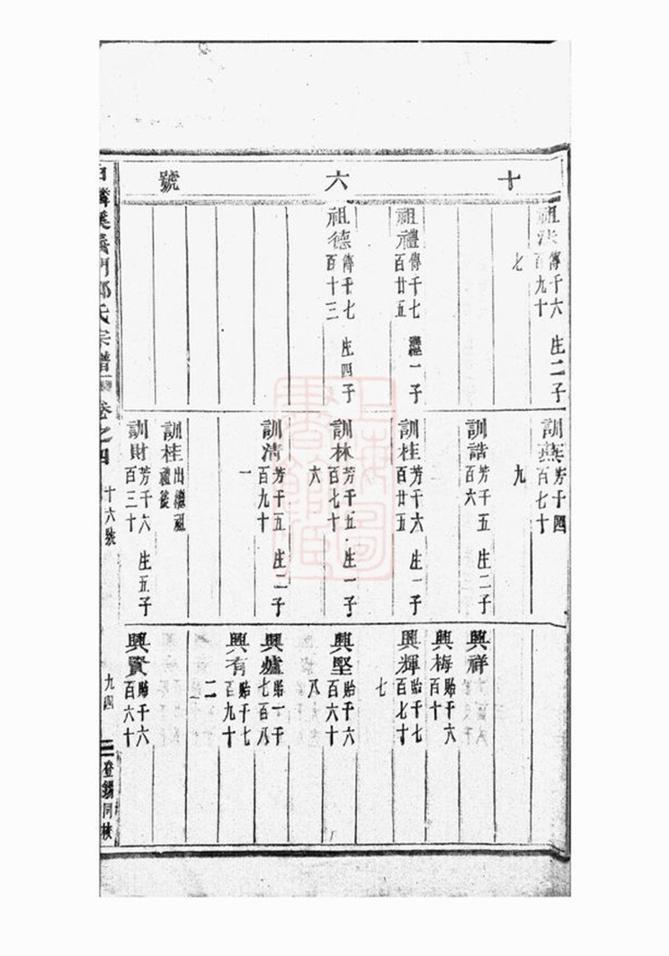 十六號
祖法 傳千六百九十七 生二子
祖禮 傳千七百廿五 繼一子
祖德 傳千七百十三 生四子
訓燕 芳千四百七十九
訓誥 芳千五百六 生二子
訓桂 芳千六百廿五 生一子
訓林 芳千五百七十六 生一子
訓清 芳千五百九十一 生二子
訓桂 出繼祖禮後
訓財 芳千六百三十 生五子
興祥
興梅 貽千六百十
興輝 貽千七百七十七
興堅 貽千六百六十八
興爐 貽一千七百八
興有 貽千七百九十二
興賢 貽千六百六十
氏宗譜 卷之四 十六號 九四 登錫同梓